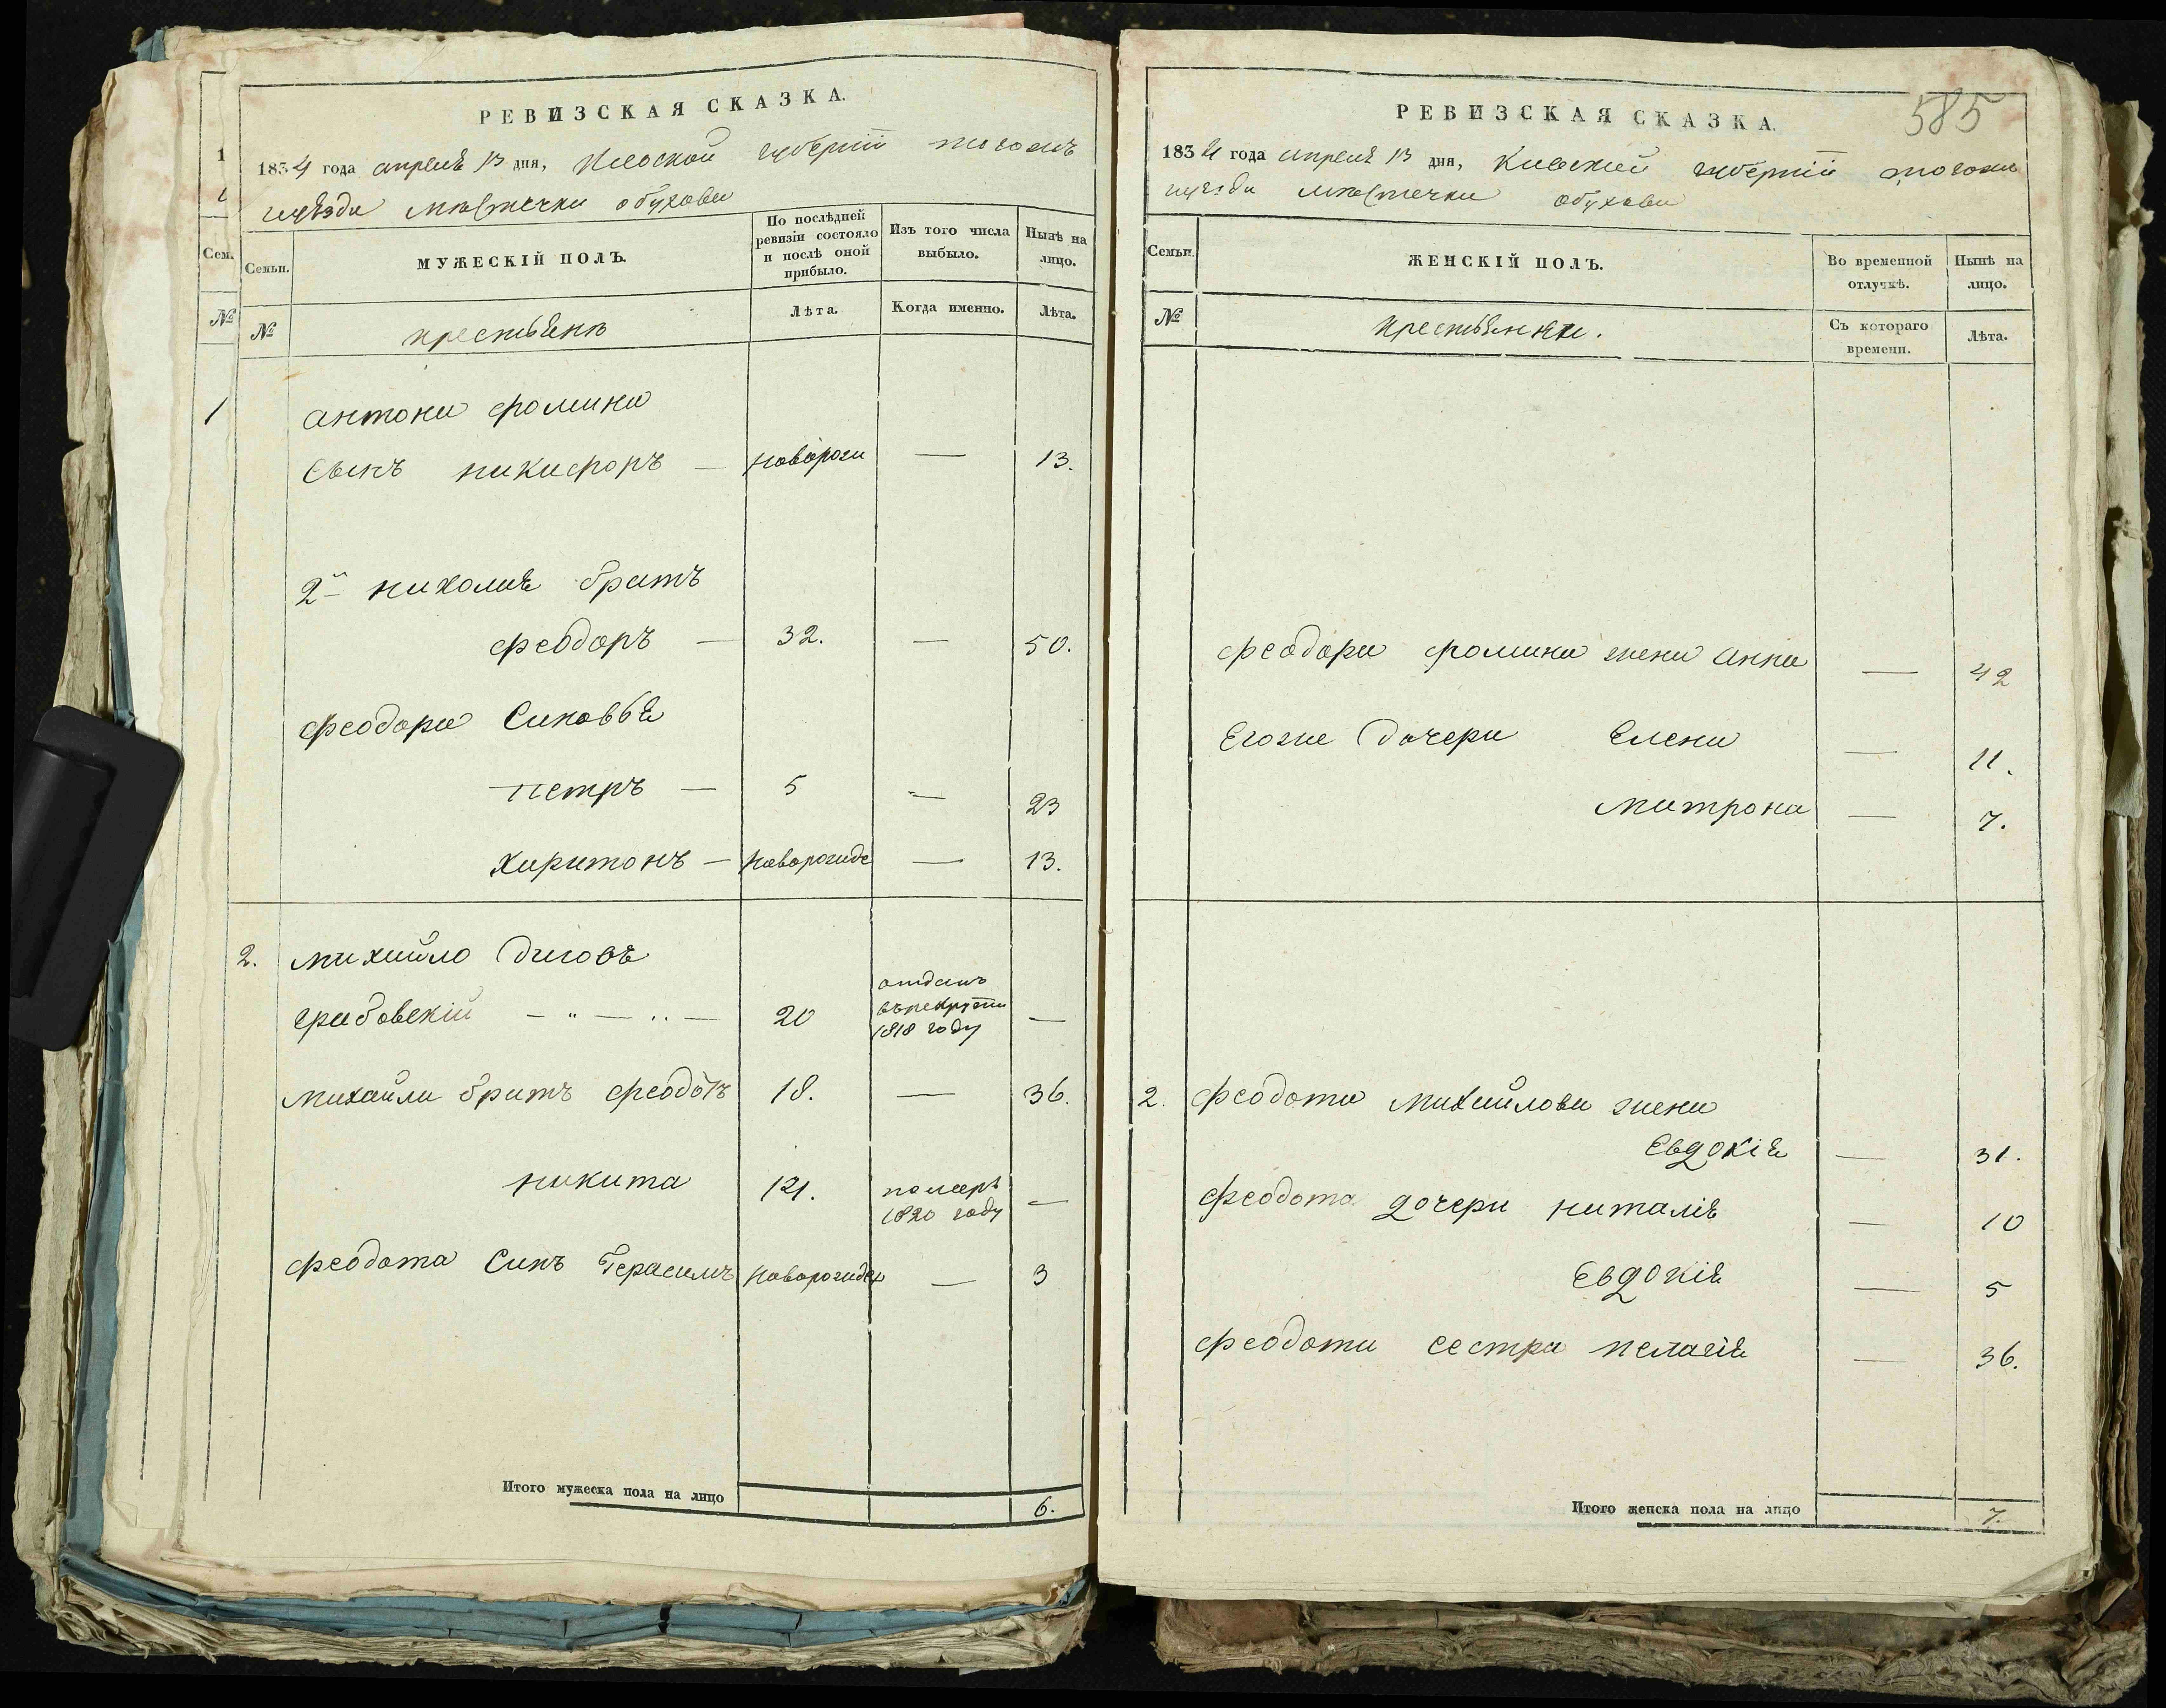 РЕВИЗСКАЯ СКАЗКА.
1834 года апреля 13 дня, Киевской губернiи тогожъ
уѣзда мѣстечка обухова
Семьи.
МУЖЕСКIЙ ПОЛЪ.
По послѣдней ревизiи состояло и послѣ оной прибыло.
Изъ того числа выбыло.
Нынѣ на лицо.
№
крестьянъ
Лѣта.
Когда именно.
Лѣта.
1
антона фомина
Сынъ никифоръ — новорож — 13.
2й николая братъ
феодоръ — 32. — 50.
феодора Синовья
петръ — 5 — 23
харитонъ — новорожде — 13.
2. михайло
грабовскiй — 20
отданъ
въ рекруты
1818 году —
михайла братъ феодотъ 18. — 36.
никита 12.
померъ
1820 году —
феодота Синъ Герасимъ новорожден — 3
Итого мужеска пола на лицо 6.
Сем.
№
1
РЕВИЗСКАЯ СКАЗКА.
585
1834 года апреля 13 дня, Киевской губернiи тогожъ
уѣзда мѣстечка обухова
Семьи.
ЖЕНСКIЙ ПОЛЪ.
Во временной отлучкѣ.
Нынѣ на лицо.
№
крестьянки.
Съ котораго времени.
Лѣта.
феодора фомина жена анна — 42
Егоже дочери Елена — 11.
матрона — 7.
2. феодота михайлова жена
Евдокiя — 31.
феодота дочери наталiя — 10
Евдокiя — 5
феодота сестра пелагiя — 36.
Итого женска пола на лицо 7.